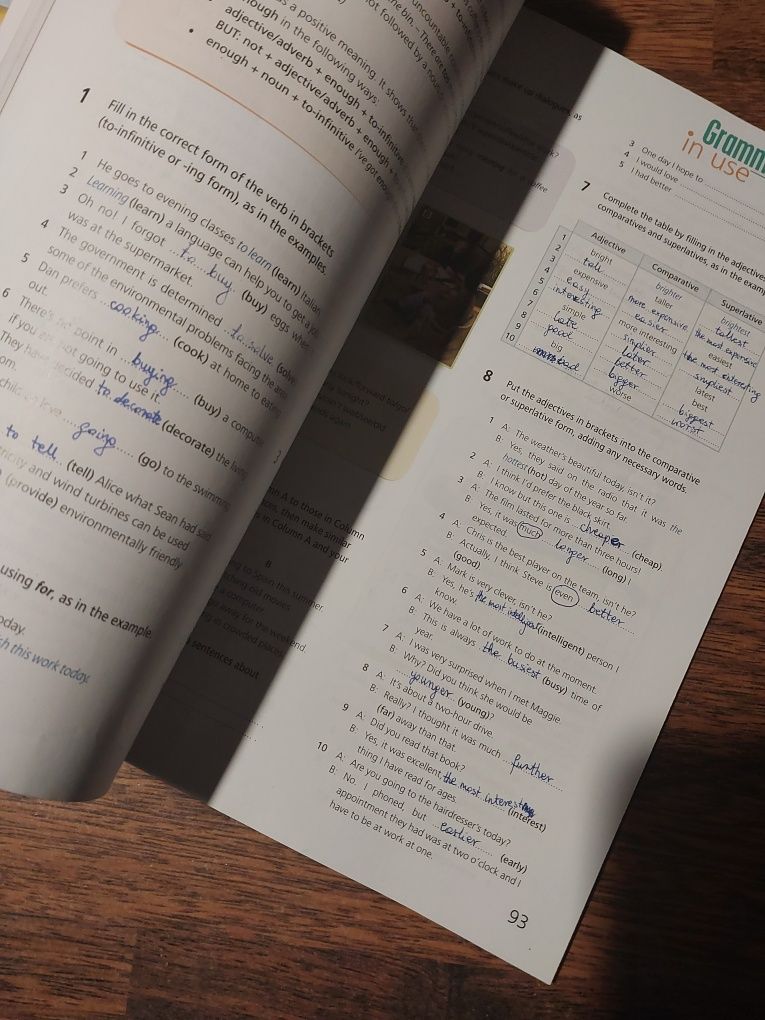 s a positive meaning. It shows tha
nough in the following ways:
adjective/adverb + enough + to-infinitive
BUT: not + adjective/adverb + enough +
enough + noun + to-infinitive I've got enou
1 Fill in the correct form of the verb in brackets
(to-infinitive or -ing form), as in the examples.
1 He goes to evening classes to learn (learn) Italian.
2 Learning (learn) a language can help you to get a jo
3 Oh no! I forgot to buy (buy) eggs whe
was at the supermarket.
4 The government is determined to solve (solve
some of the environmental problems facing the
5 Dan prefers cooking (cook) at home to eating
out.
6 There's no point in buying (buy) a compute
if you are not going to use it.
They have decided to decorate (decorate) the living
om.
love going (go) to the swimming
to tell (tell) Alice what Sean had said
ricity and wind turbines can be used
(provide) environmentally friendly
using for, as in the example.
oday.
sh this work today.
make up dialogues, as
3
look forward to/go
n A to those in Column
ces, then make similar
in Column A and your
B
g to Spain this summer.
ching old movies.
a computer.
go away for the weekend.
g in crowded places.
sentences about
Gramm
in use
3 One day I hope to
4 I would love
5 I had better
7 Complete the table by filling in the adjectives
comparatives and superlatives, as in the examp
Adjective Comparative Superlative
1 bright brighter brightest
2 tall taller tallest
3 expensive more expensive the most expensive
4 easy easier easiest
5 interesting more interesting the most interesting
6 simple simplier simpliest
7 late later latest
8 good better best
9 big bigger biggest
10 bad worse worst
8 Put the adjectives in brackets into the comparative
or superlative form, adding any necessary words.
1 A: The weather's beautiful today, isn't it?
B: Yes, they said on the radio that it was the
hottest (hot) day of the year so far.
2 A: I think I'd prefer the black skirt.
B: I know but this one is cheaper (cheap).
3 A: The film lasted for more than three hours!
B: Yes, it was much longer (long) I
expected.
4 A: Chris is the best player on the team, isn't he?
B: Actually, I think Steve is even better
(good).
5 A: Mark is very clever, isn't he?
B: Yes, he's the most intelligent (intelligent) person I
know.
6 A: We have a lot of work to do at the moment.
B: This is always the busiest (busy) time of
year.
7 A: I was very surprised when I met Maggie.
B: Why? Did you think she would be
younger (young)?
8 A: It's about a two-hour drive.
B: Really? I thought it was much further
(far) away than that.
9 A: Did you read that book?
B: Yes, it was excellent, the most interesting (interest)
thing I have read for ages.
10 A: Are you going to the hairdresser's today?
B: No. I phoned, but earlier (early)
appointment they had was at two o'clock and I
have to be at work at one.
93